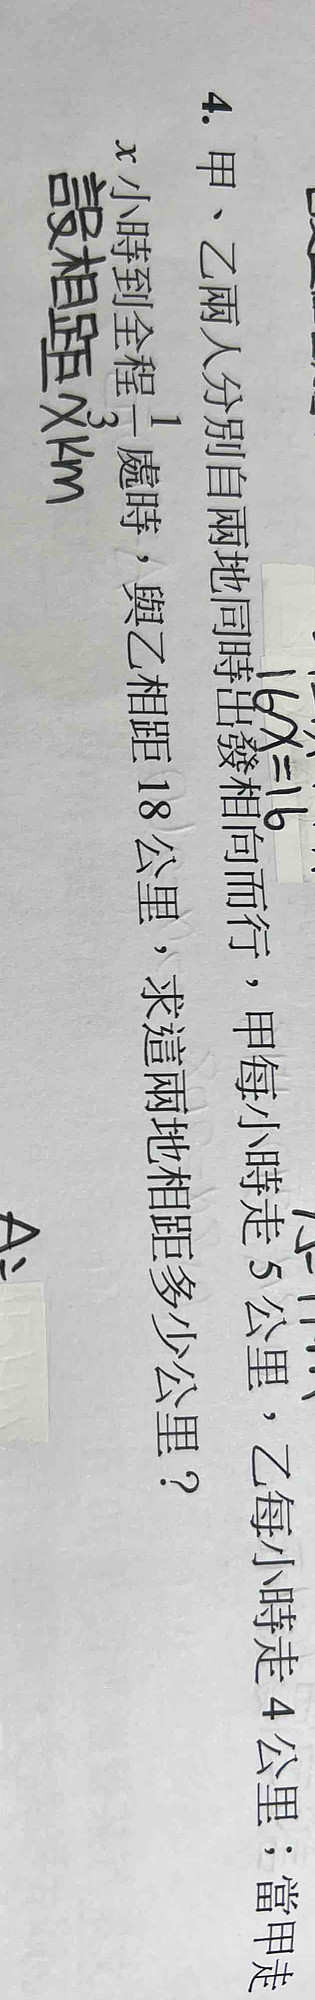 16x=16
4. 甲、乙兩人分別自兩地同時出發相向而行，甲每小時走 5 公里，乙每小時走 4 公里；當甲走
x 小時到全程 1/3 處時，與乙相距 18 公里，求這兩地相距多少公里？
設相距 x km
A: